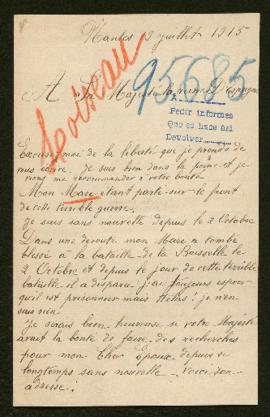 Nantes 9 juillet 1915
Loiseau
95685
A Sa Majesté la reine D'Espagne
Pedir informes
Que se hace así
Devolver
Excusez moi de la liberté que je prends de
vous écrire. Je suis bien dans la peine et je
viens me recommander à votre bonté
Mon Mari étant parti sur le front
de cette terrible guerre.
Je suis sans nouvelle depuis le 2 Octobre
Dans une déroute mon Mari a tombé
blessé à la bataille de la Boisselle le
2 Octobre et depuis ce jour de cette terrible
bataille il a disparu j'ai toujours espoir
qu'il est prisonnier mais Hélas! je n'en
suis rien.
Je serais bien heureuse si votre Majesté
avait la bonté de faire des recherches
pour mon Cher Époux depuis si
longtemps sans nouvelle. Voici son
adresse: